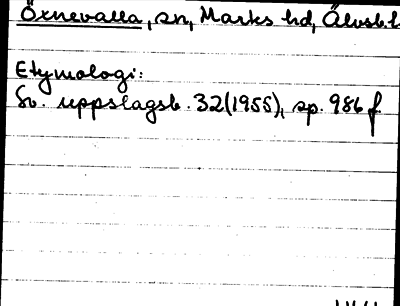 Öxnevalla, sn, Marks hd, Älvsb. l
Etymologi:
Sv. uppslagsb. 32(1955), sp. 986 f.